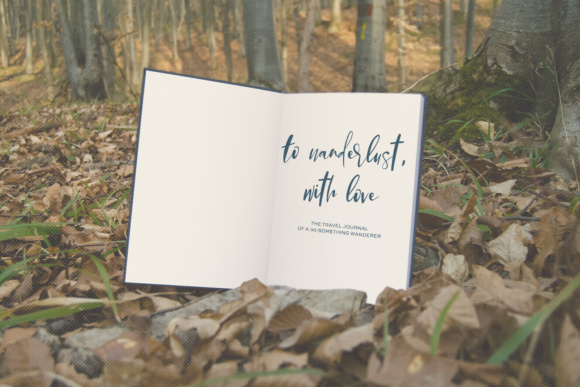 to wanderlust,
with love
THE TRAVEL JOURNAL
OF A 30-SOMETHING WANDERER